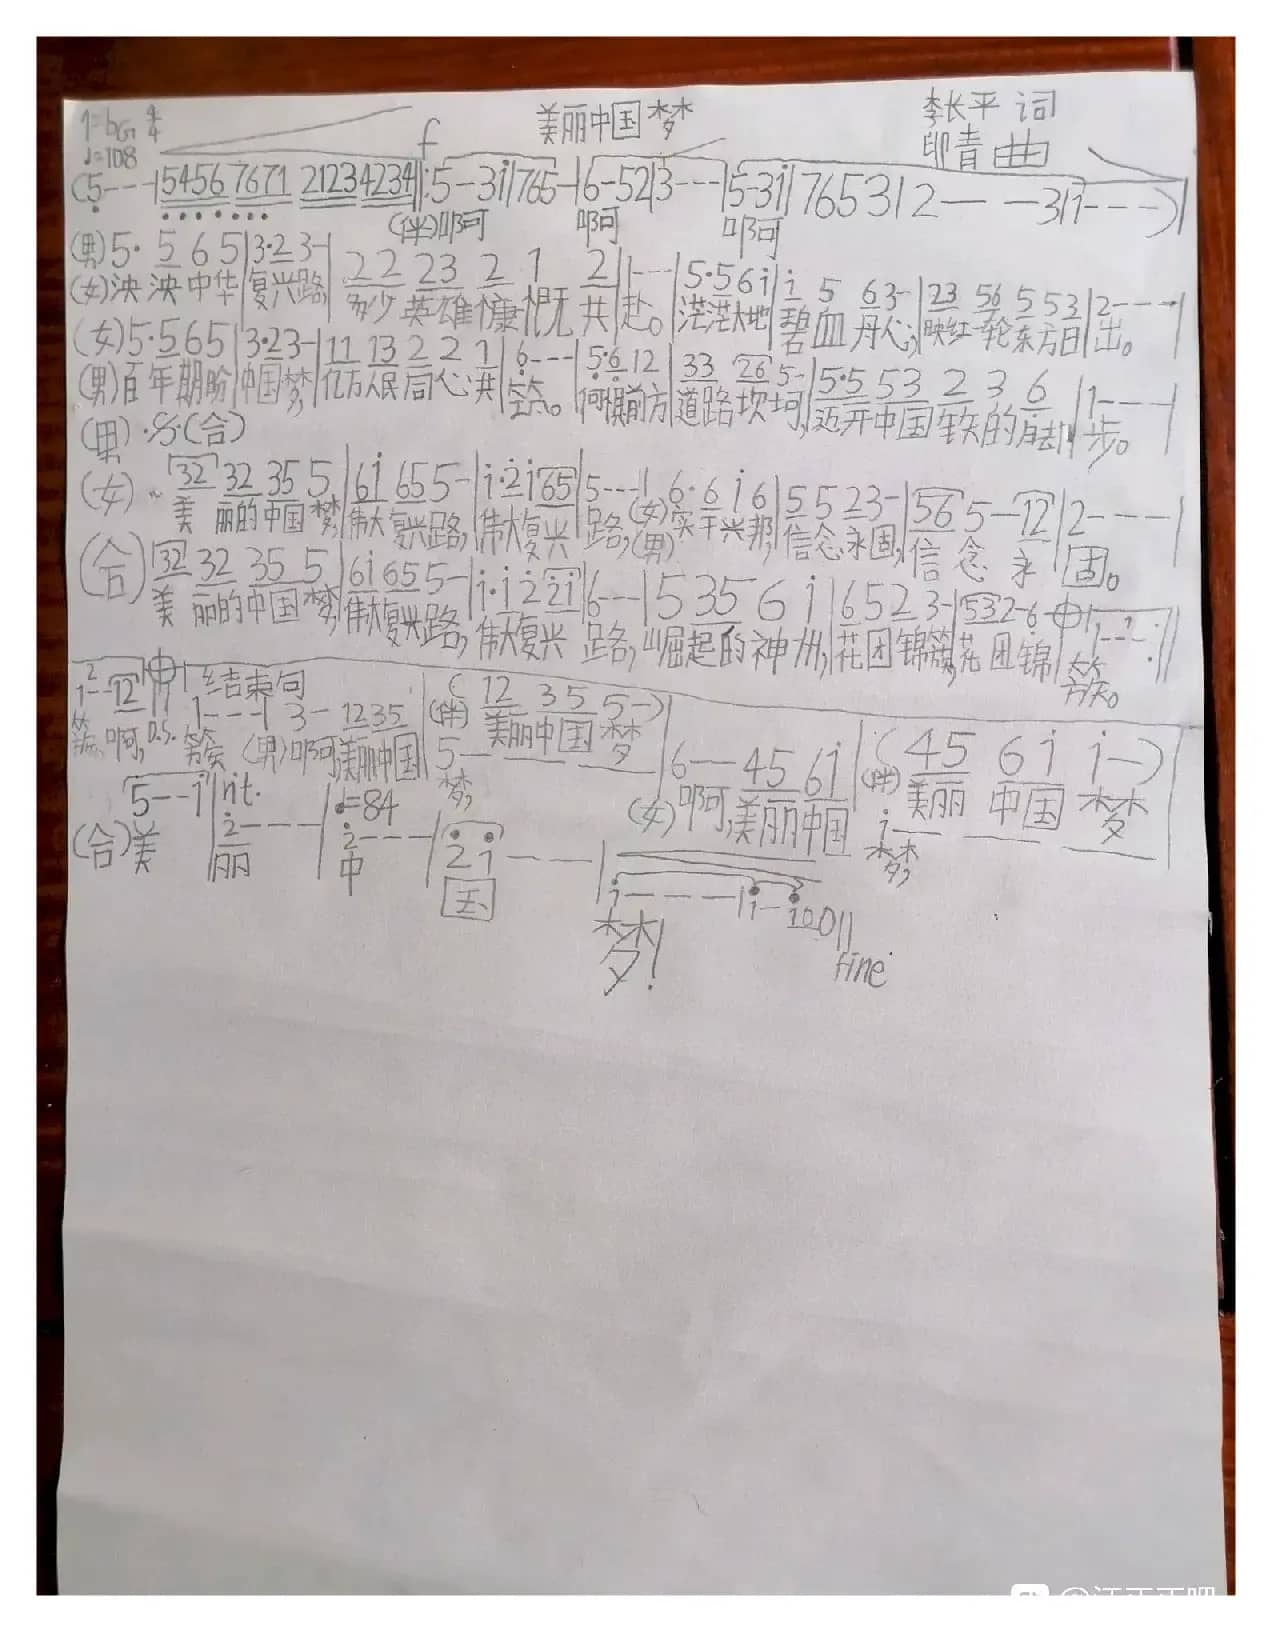 1=bG 4/4 美丽中国梦 李长平 词
♩=108 f 卯青 曲
(5---|5456 7671 2123 4234‖:5--3i|765-|6-52|3---|5-3i|7653|2---3|1---)|
(伴)啊 啊 啊
(男)5· 5 6 5|3·2 3-|22 23 2 1 2|1---|5·5 6 i|i 5 6 3-|23 56 5 53|2---|
(女)泱 泱 中华 复兴路, 多少 英雄 慷 慨 共 赴。 茫茫大地 碧血 丹心, 映红一轮东方日 出。
(女)5·5 6 5|3·2 3-|11 13 2 2 1|6---|5·6 1 2|33 26 5-|5·5 53 2 3 6|1---|
(男)百年期盼 中国梦, 亿万人民 同 心 共 筑。 何惧前方 道路坎坷, 迈开中国 的脚 步。
(男)·S·(合)
(女) 32 32 35 5|6i 65 5-|i·2 i 65|5---|6·6 i 6|5 5 2 3-|56 5-12|2---|
美 丽的中国 梦, 伟大复兴路, 伟大复兴 路,(女)(男)实干兴邦, 信念永固, 信 念 永 固。
(合)32 32 35 5|6i 65 5-|i·i 2 2i|6---|5 35 6 i|6 5 2 3-|53 2-6|1---:‖
美 丽的中国 梦, 伟大复兴路, 伟大复兴 路, 崛起的神 州, 花团锦簇, 花 团 锦 簇。
2 1--12‖ 结束句 1---|3-12 35|(伴)(12 35 5-)
簇, 啊, D.S. 簇 (男)啊,美丽中国 美丽中国 梦
5-- 梦, 6--45 6i|(伴)(45 6i i-)
(女)啊,美丽中国 美丽 中国 梦
i-- 梦,
5--i|rit. 2---|♩=84 2---|2 1--|i---|i-i00‖
(合)美 丽 中 国 梦! fine